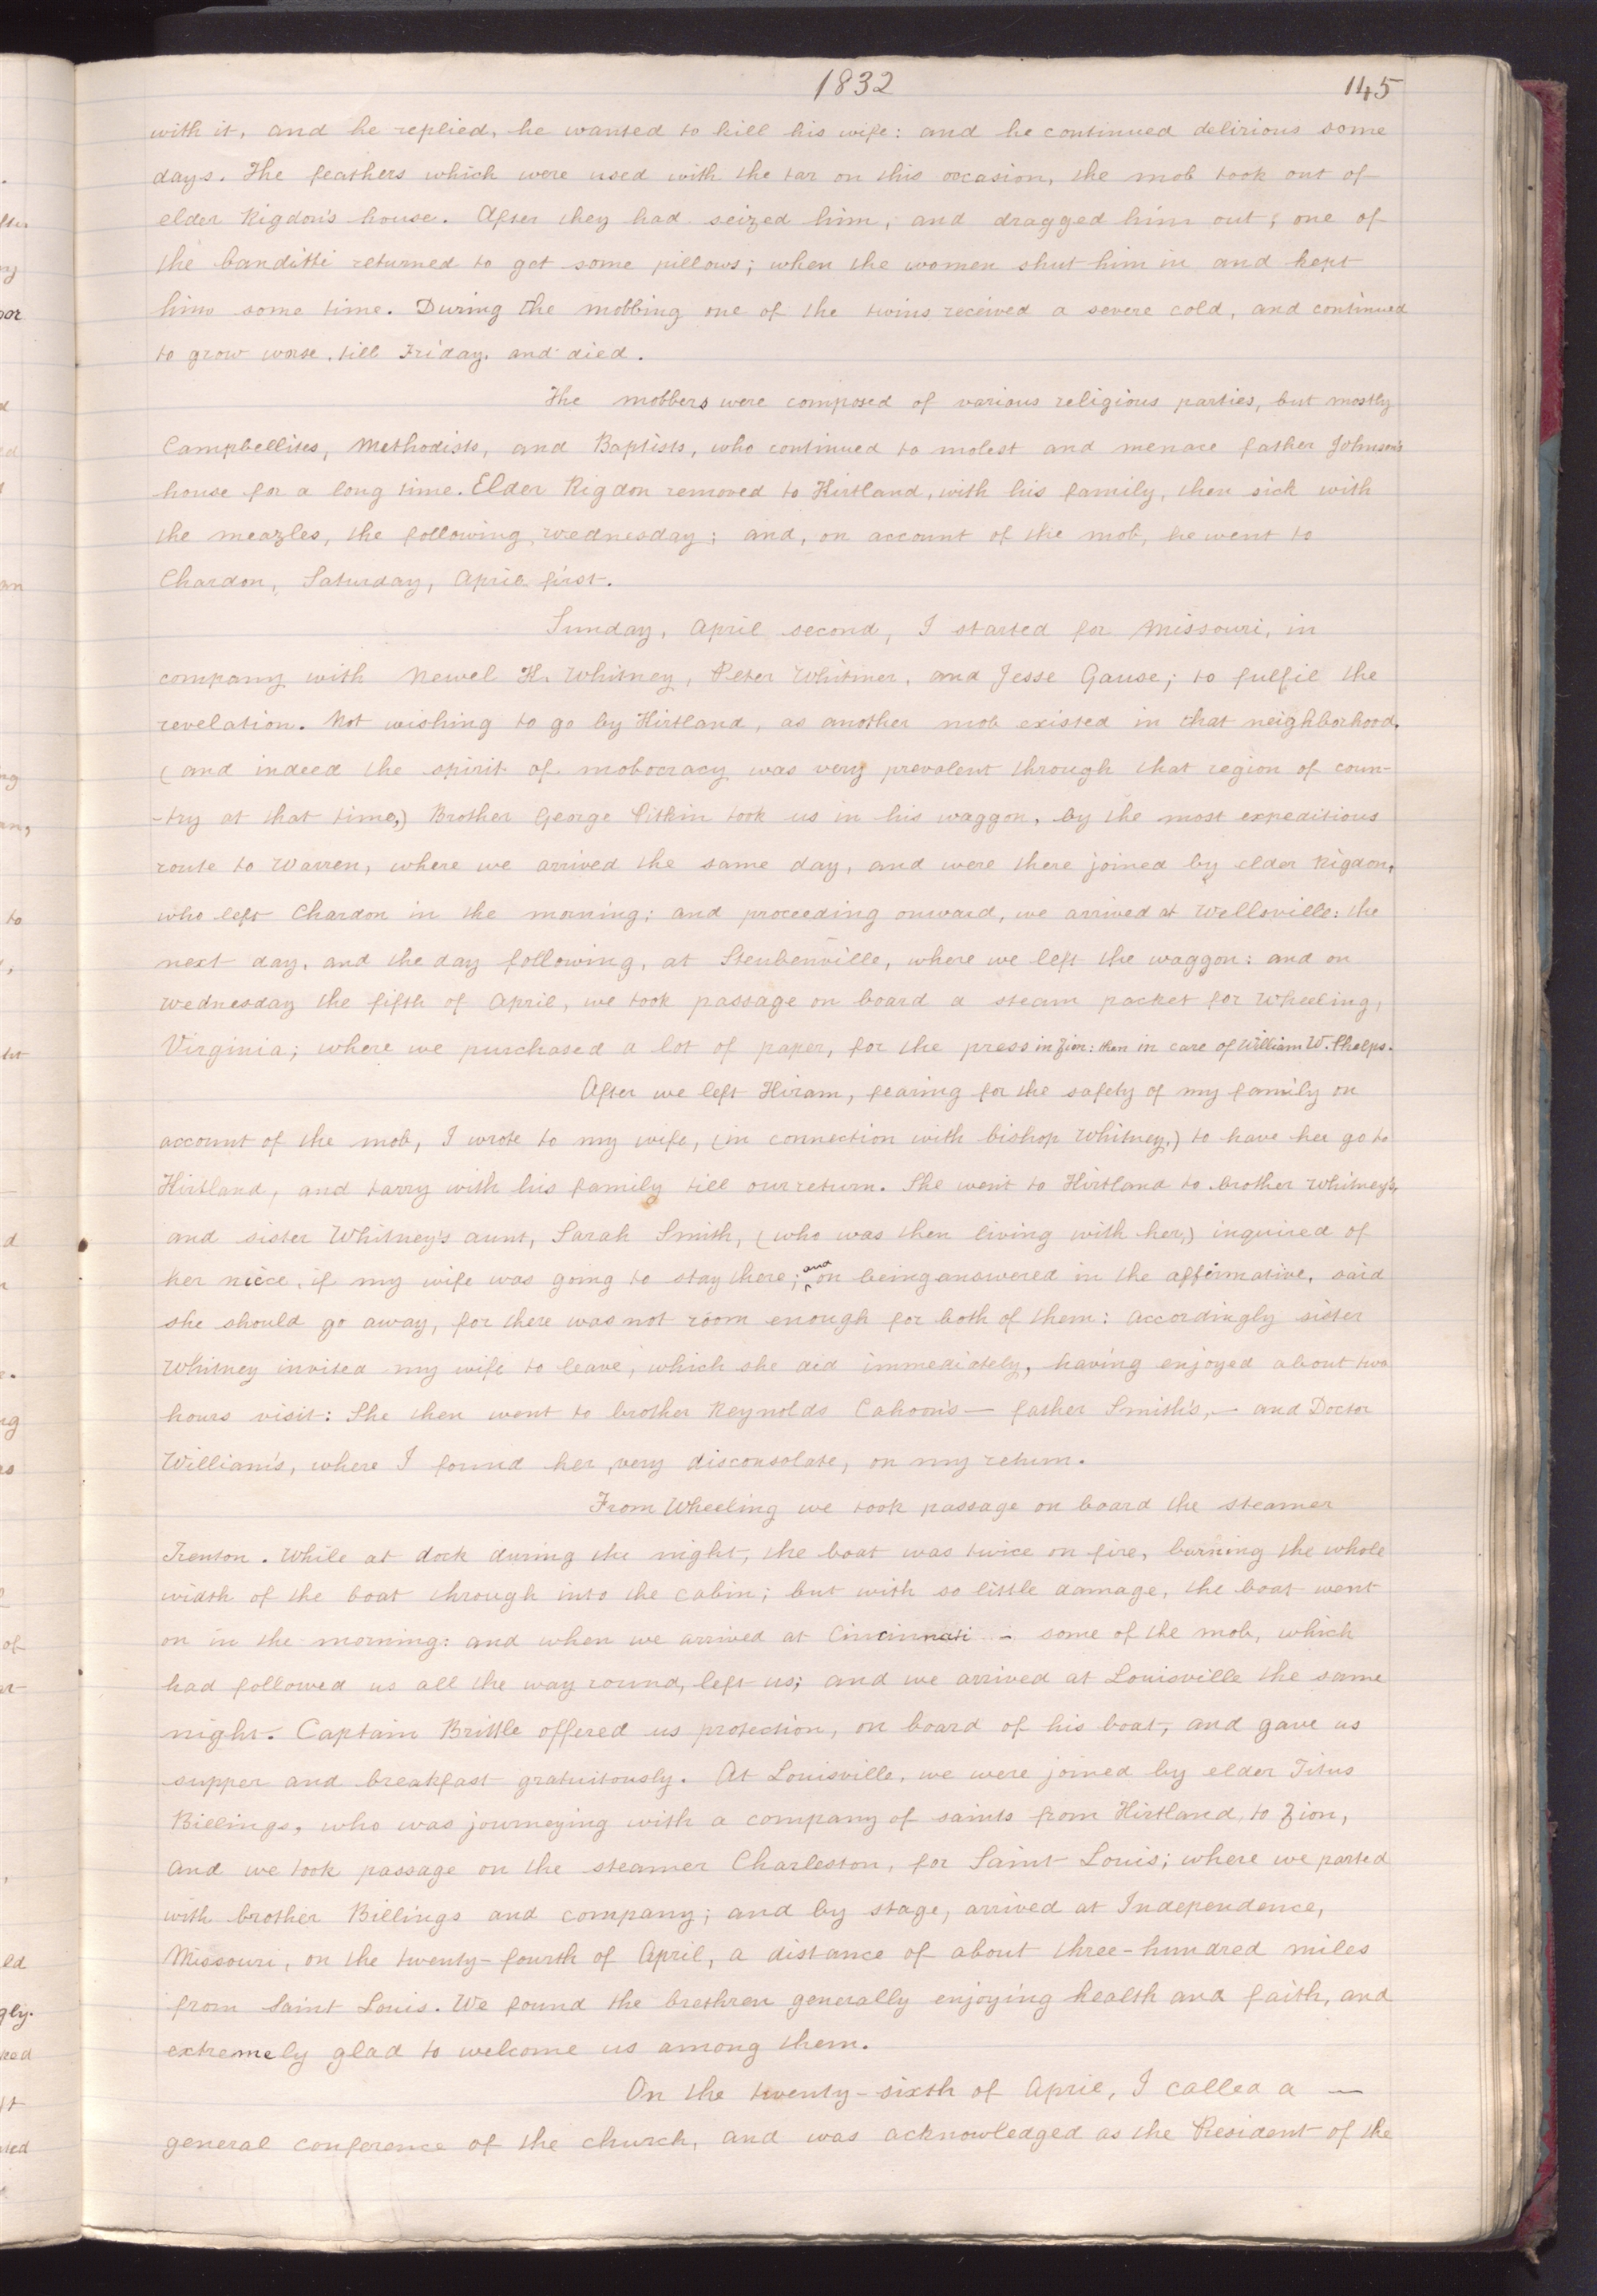 1832 145
with it, and he replied, he wanted to kill his wife: and he continued delirious some
days. The feathers which were used with the tar on this occasion, the mob took out of
elder Rigdon's house. After they had seized him, and dragged him out, one of
the banditti returned to get some pillows; when the women shut him in and kept
him some time. During the mobbing one of the twins received a severe cold, and continued
to grow worse, till Friday, and died.
The mobbers were composed of various religious parties, but mostly
Campbellites, Methodists, and Baptists, who continued to molest and menace father Johnson's
house for a long time. Elder Rigdon removed to Kirtland, with his family, then sick with
the meazles, the following wednesday; and, on account of the mob, he went to
Chardon, Saturday, April first.
Sunday, April second, I started for Missouri, in
company with Newel K. Whitney, Peter Whitmer, and Jesse Gause; to fulfil the
revelation. Not wishing to go by Kirtland, as another mob existed in that neighborhood,
(and indeed the spirit of mobocracy was very prevalent through that region of coun-
-try at that time,) Brother George Pitkin took us in his waggon, by the most expeditious
route to Warren, where we arrived the same day, and were there joined by elder Rigdon,
who left Chardon in the morning; and proceeding onward, we arrived at Wellsville: the
next day, and the day following, at Steubenville, where we left the waggon: and on
wednesday the fifth of April, we took passage on board a steam packet for Wheeling,
Virginia; where we purchased a lot of paper, for the press in Zion: then in care of William W. Phelps.
After we left Hiram, fearing for the safety of my family on
account of the mob, I wrote to my wife, (in connection with bishop Whitney,) to have her go to
Kirtland, and tarry with his family till our return. She went to Kirtland to brother Whitney's,
and sister Whitney's aunt, Sarah Smith, (who was then living with her,) inquired of
her niece, if my wife was going to stay there; and on being answered in the affirmative, said
she should go away, for there was not room enough for both of them: accordingly sister
Whitney invited my wife to leave, which she did immediately, having enjoyed about two
hours visit: She then went to brother Reynolds Cahoon's — father Smith's, — and Doctor
William's, where I found her, very disconsolate, on my return.
From Wheeling we took passage on board the steamer
Trenton. While at dock during the night, the boat was twice on fire, burning the whole
width of the boat through into the cabin; but with so little damage, the boat went
on in the morning: and when we arrived at Cincinnati - some of the mob, which
had followed us all the way round, left us; and we arrived at Louisville the same
night. Captain Brittle offered us protection, on board of his boat, and gave us
supper and breakfast gratuitously. At Louisville, we were joined by elder Titus
Billings, who was journeying with a company of saints from Kirtland, to Zion,
and we took passage on the steamer Charleston, for Saint Louis; where we parted
with brother Billings and company; and by stage, arrived at Independence,
Missouri, on the twenty-fourth of April, a distance of about three-hundred miles
from Saint Louis. We found the brethren generally enjoying health and faith, and
extremely glad to welcome us among them.
On the twenty-sixth of April, I called a —
general conference of the church, and was acknowledged as the President of the